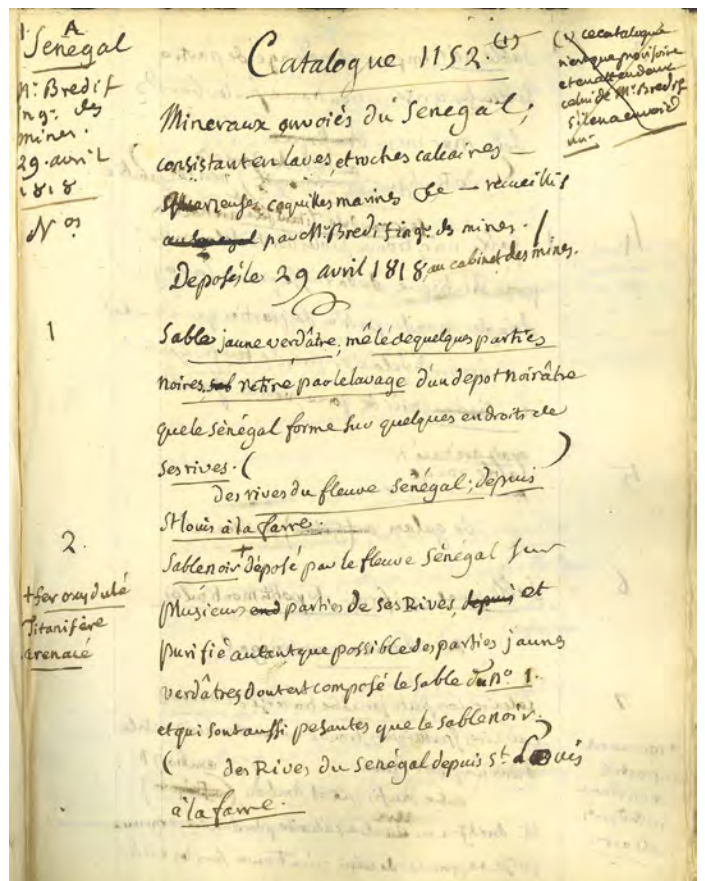 1. A
Senegal
Mr. Bredif
ingr. des
mines.
29. avril
1818
Nos
Catalogue 1152. (1)
(1) ce catalogue
n'est que provisoire
et en attendant
celui de Mr. Bredif
s'il en a envoié
un.
Mineraux envoiés du Senegal;
consistant en laves, et roches calcaires —
quarzeuses, coquilles marines &e — recueillis
au Senegal par Mr. Bredif ingr. des mines. /
Deposés le 29 avril 1818, au cabinet des mines.
1
Sable jaune verdâtre, mêlé de quelques parties
noires, retiré par le lavage d'un depot noirâtre
que le sénégal forme sur quelques endroits de
ses rives. ( )
Des rives du fleuve Sénégal; depuis
St Louis à la
2.
Sable noir + déposé par le fleuve Sénégal sur
plusieurs parties de ses Rives, depuis et
+ fer oxydulé
Titanifère
arenacé
purifié autant que possible des parties jaunes
verdâtres dont est composé le Sable du no 1.
et qui sont aussi pesantes que le sable noir.
( des Rives du Senégal depuis St. Louis
à la